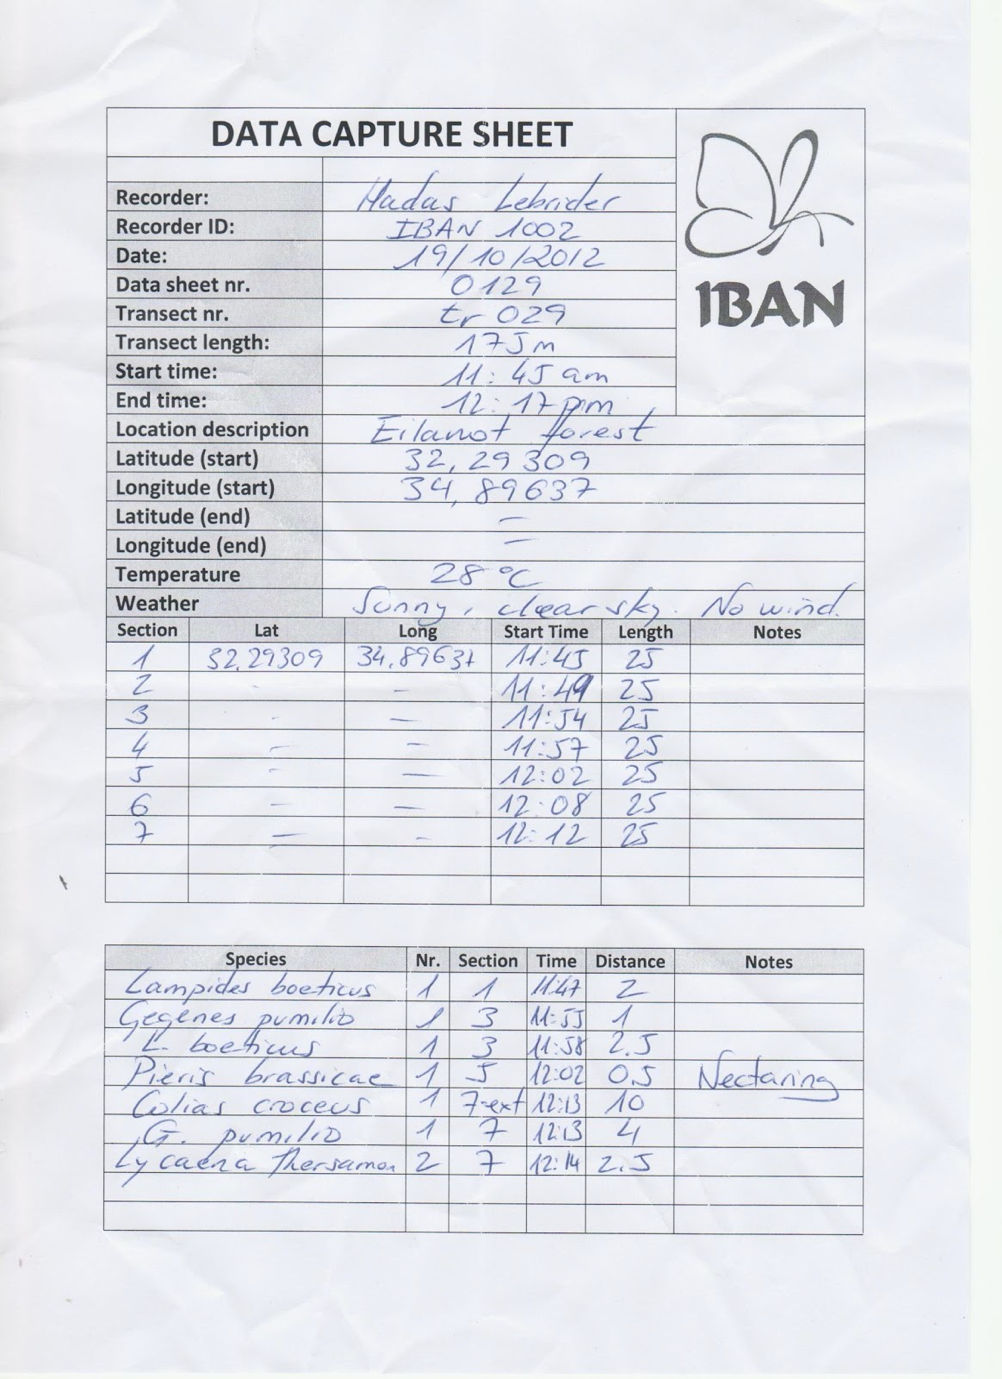 DATA CAPTURE SHEET
Recorder: Hadas Lebrider
Recorder ID: IBAN 1002
Date: 19/10/2012
IBAN
Data sheet nr. 0129
Transect nr. tr 029
Transect length: 175m
Start time: 11:45 am
End time: 12:17 pm
Location description Eilanot forest
Latitude (start) 32,29309
Longitude (start) 34,89637
Latitude (end) –
Longitude (end) –
Temperature 28 °C
Weather Sunny, clear sky. No wind.
Section Lat Long Start Time Length Notes
1 32,29309 34,89637 11:45 25
2 - – 11:49 25
3 - – 11:54 25
4 – – 11:57 25
5 - – 12:02 25
6 – – 12:08 25
7 – - 12:12 25
Species Nr. Section Time Distance Notes
Lampides boeticus 1 1 11:47 2
Gegenes pumilio 1 3 11:55 1
L. boeticus 1 3 11:58 2.5
Pieris brassicae 1 5 12:02 0.5 Nectaring
Colias croceus 1 7-ext 12:13 10
G. pumilio 1 7 12:13 4
Lycaena thersamon 2 7 12:14 2.5